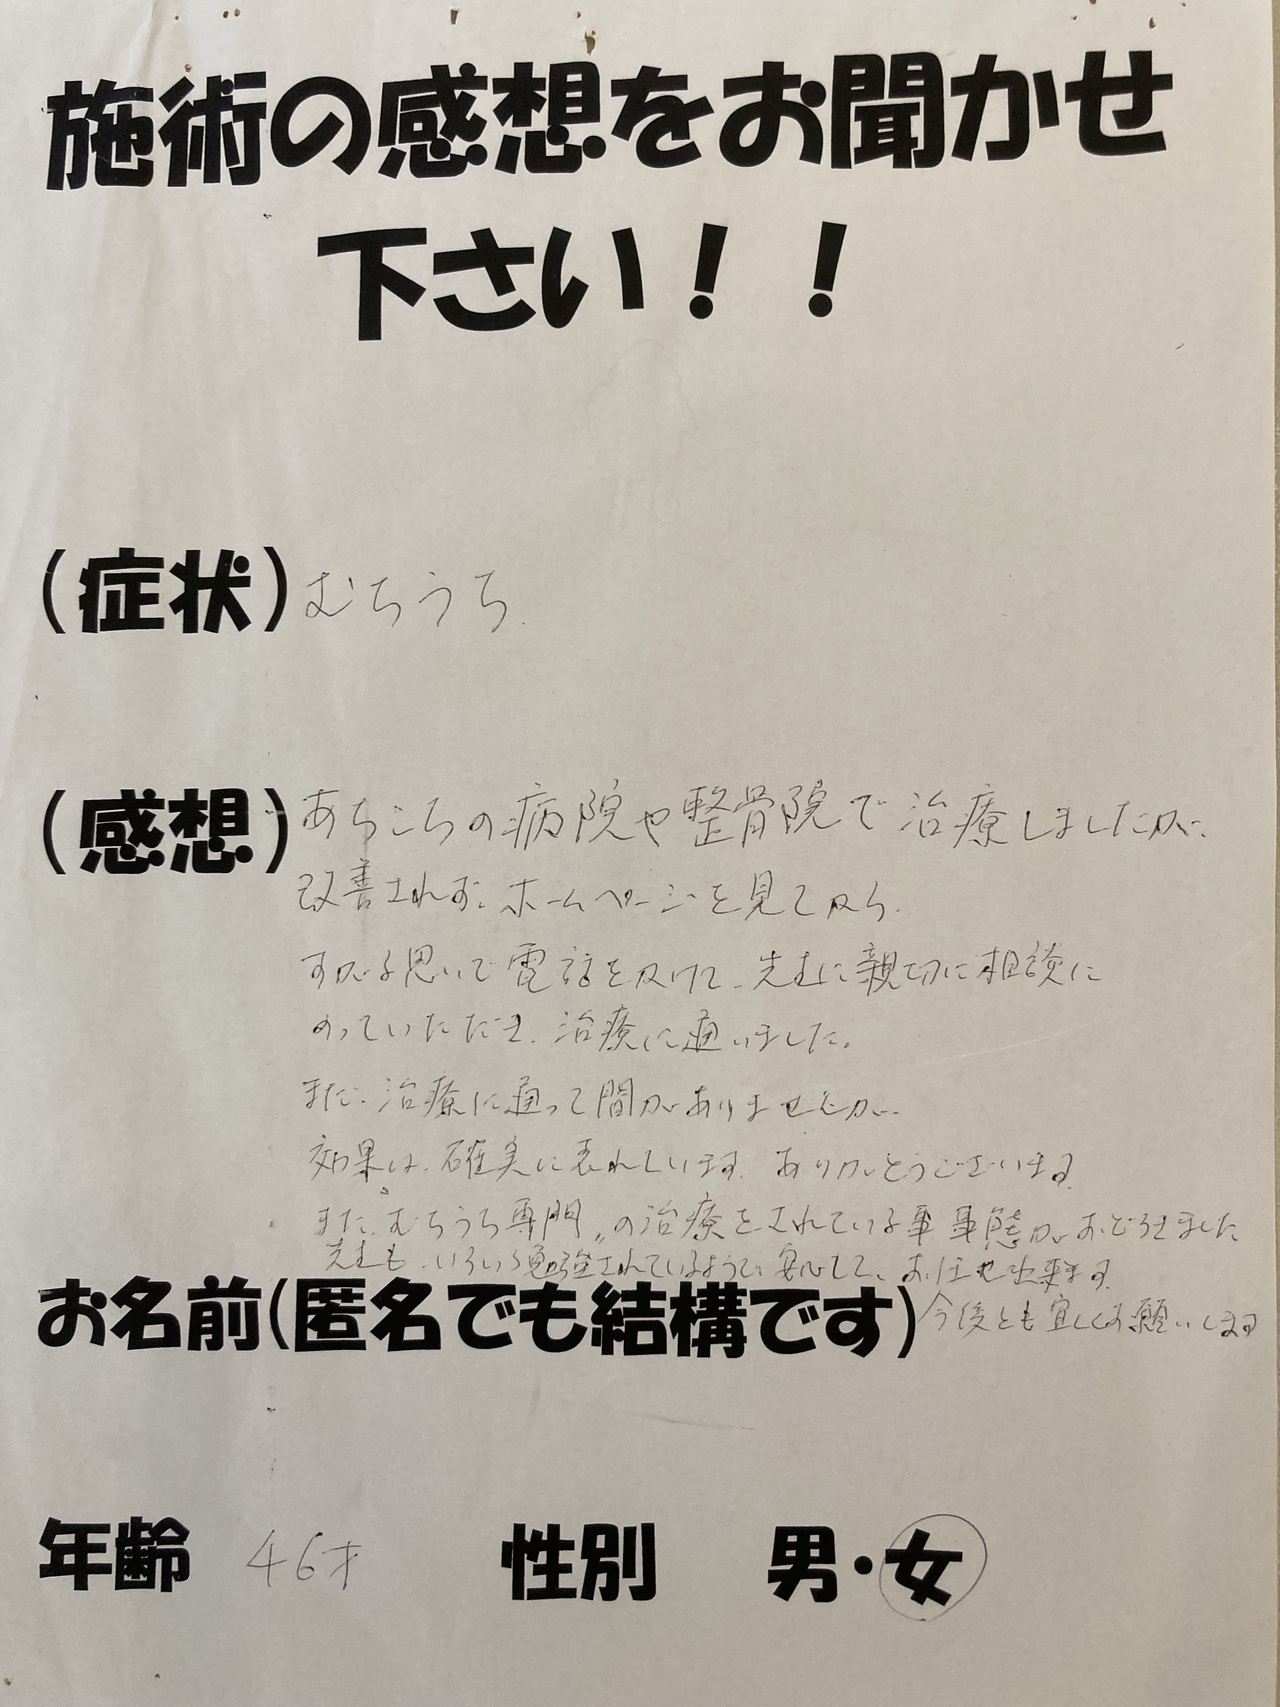 施術の感想をお聞かせ
下さい！！
(症状) むちうち.
(感想) あちこちの病院や整骨院で治療しましたが、
改善されず、ホームページを見てから.
すがる思いで電話をかけて、先生に親切に相談に
のっていただき、治療に通いました。
まだ、治療に通って間がありませんが、
効果は、確実に表れています。ありがとうございます。
また、"むちうち専門"の治療をされている事 事態がおどろきました
先生も、いろいろ勉強されているようで、安心して、お任せ出来ます。
お名前(匿名でも結構です) 今後とも宜しくお願いします
年齢 46才 性別 男・女